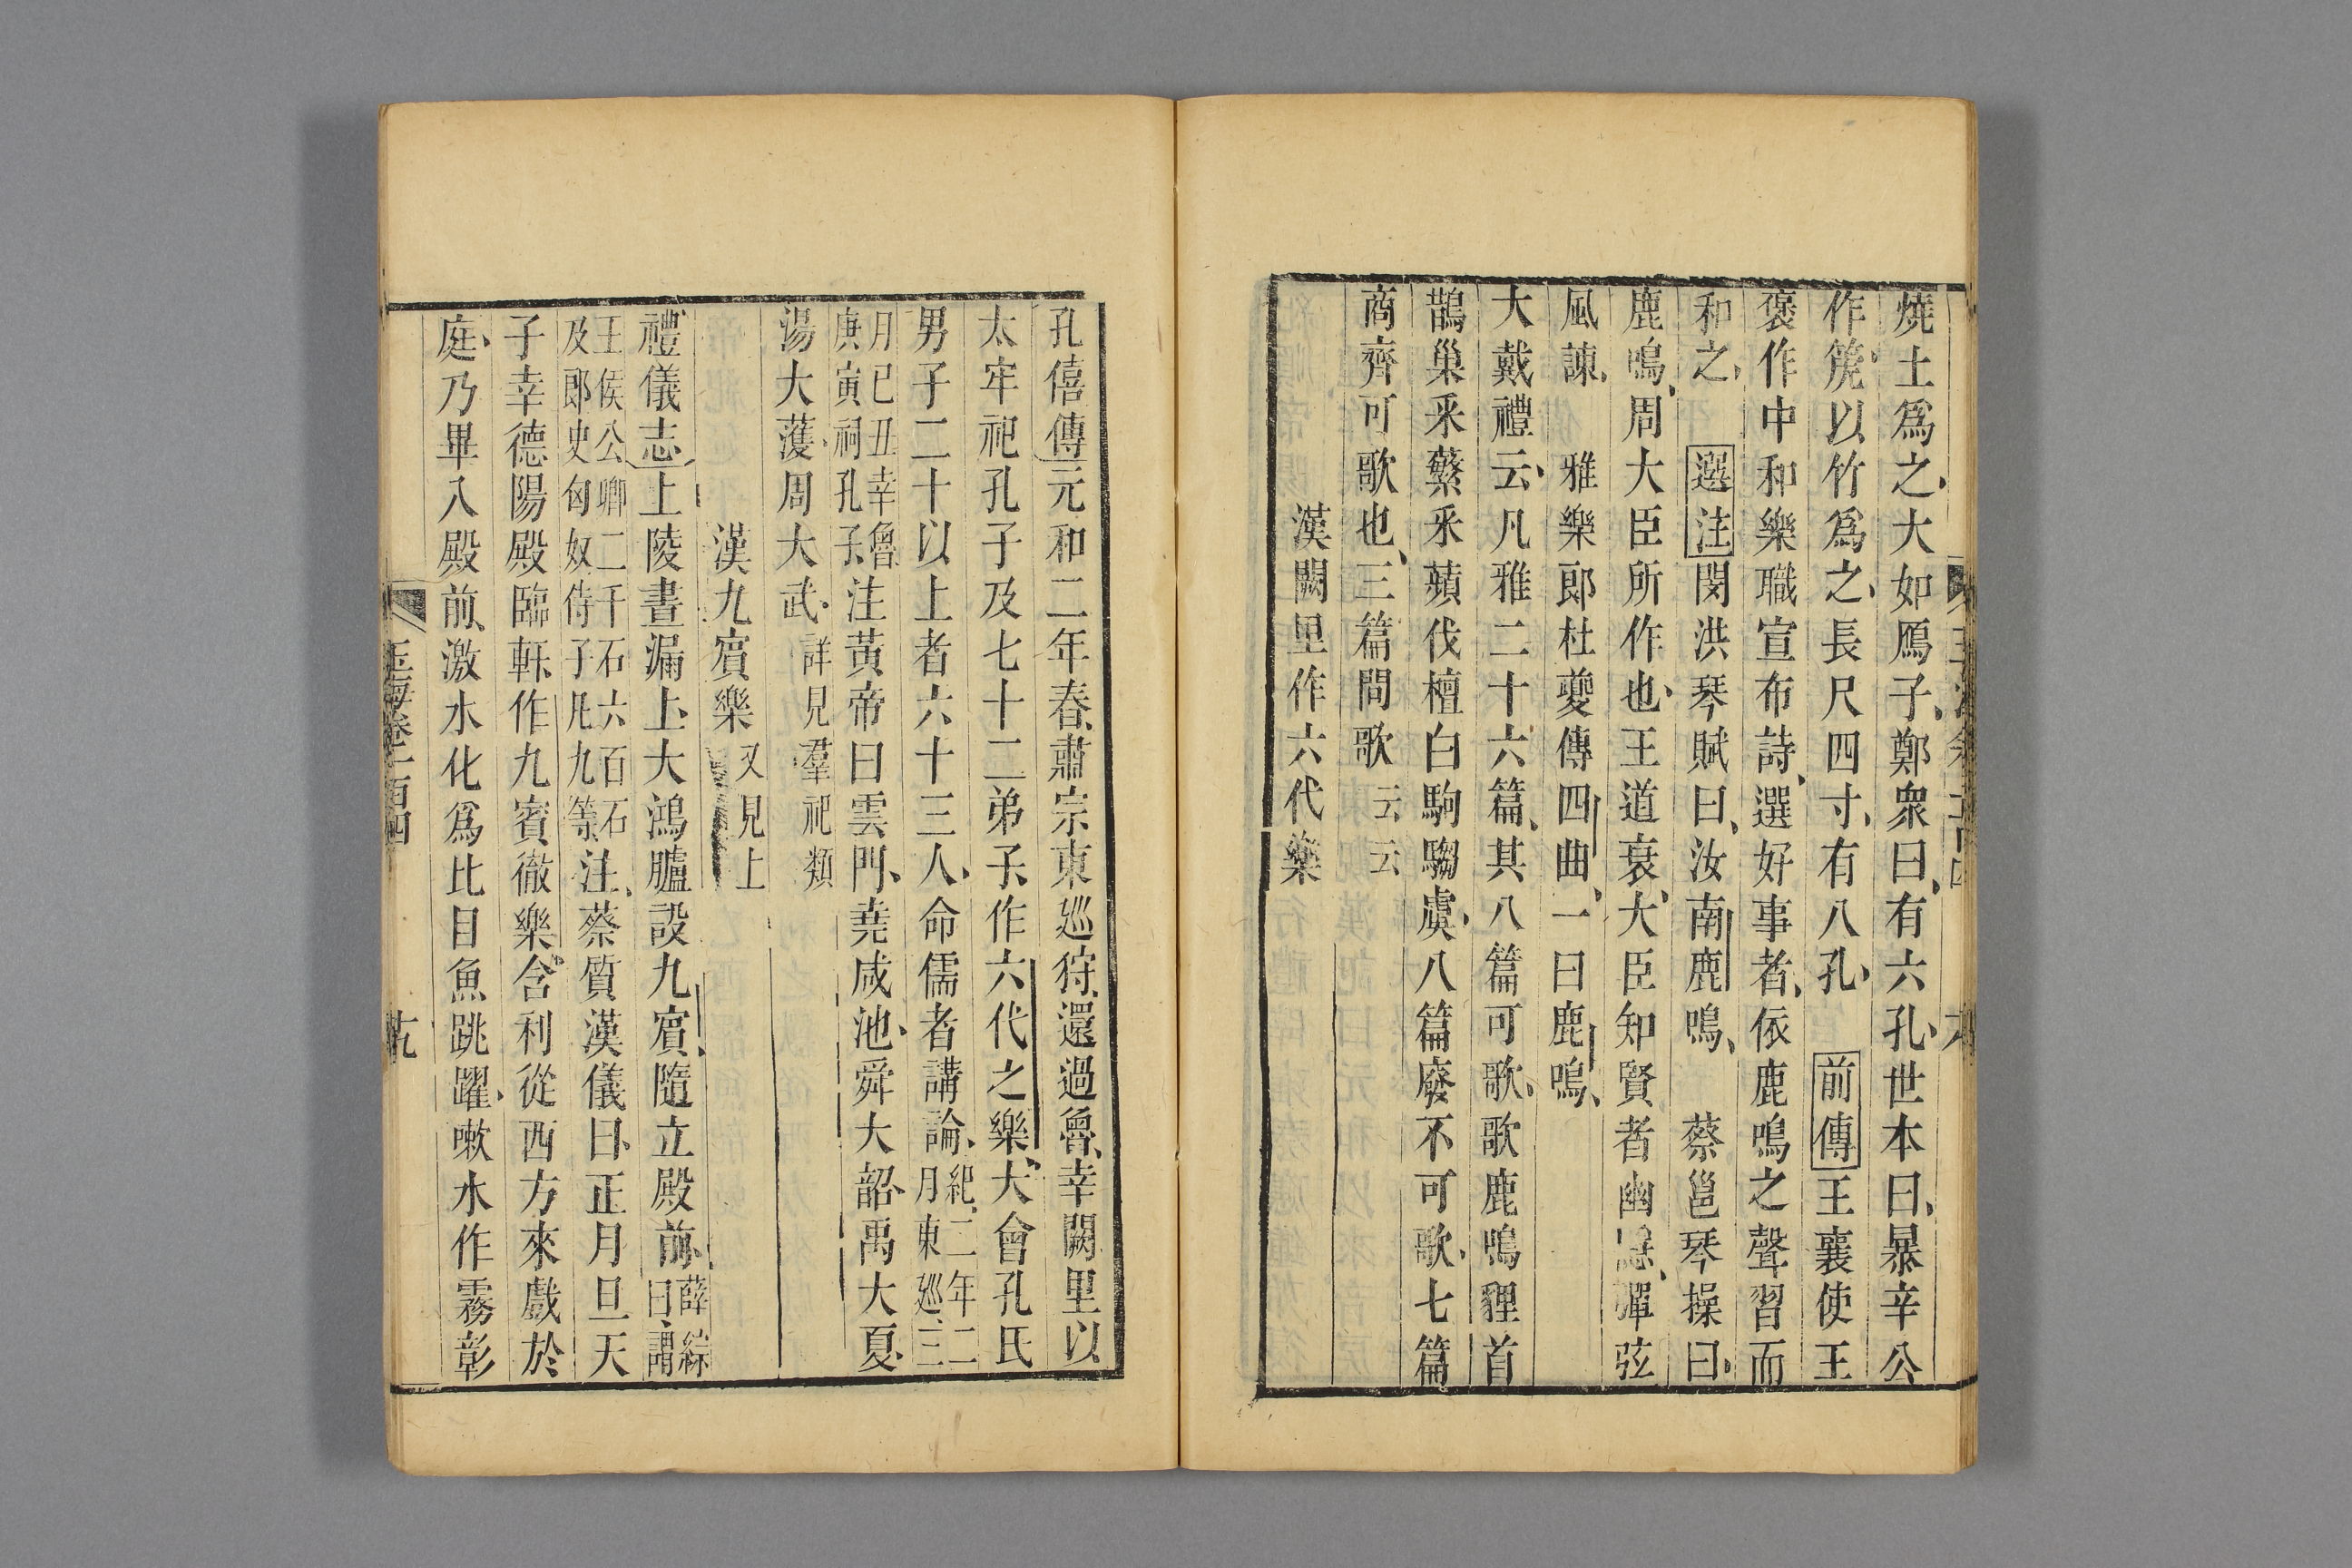 燒土爲之大如鴈子鄭衆曰有六孔世本曰暴辛公
作篪以竹爲之長尺四寸有八孔 前傳王襄使王
褒作中和樂職宣布詩選好事者依鹿鳴之聲習而
和之 選注閔洪琴賦曰汝南鹿鳴 蔡邕琴操曰
鹿鳴周大臣所作也王道衰大臣知賢者幽隱彈弦
風諫 雅樂郎杜夔傳四曲一曰鹿鳴
大戴禮云凡雅二十六篇其八篇可歌歌鹿鳴貍首
鵲巢采蘩采蘋伐檀白駒騶虞八篇廢不可歌七篇
商齊可歌也三篇間歌云云
漢闕里作六代樂
孔僖傳元和二年春肅宗東巡狩還過魯幸闕里以
太牢祀孔子及七十二弟子作六代之樂大會孔氏
男子二十以上者六十三人命儒者講論紀二年二
月東巡三
月己丑幸魯
庚寅祠孔子注黃帝曰雲門堯咸池舜大韶禹大夏
湯大濩周大武詳見羣祀類
漢九賓樂又見上
禮儀志上陵晝漏上大鴻臚設九賓隨立殿前薛綜
曰謂
王侯公卿二千石六百石
及郎史匈奴侍子凡九等注蔡質漢儀曰正月旦天
子幸德陽殿臨軒作九賓徹樂含利從西方來戲於
庭乃畢入殿前激水化爲比目魚跳躍嗽水作霧彰
玉海卷一百四